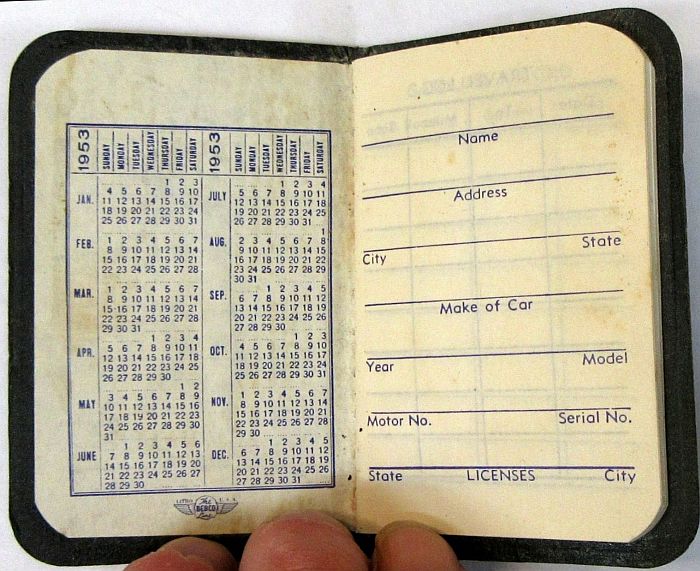 1953 SUNDAY MONDAY TUESDAY WEDNESDAY THURSDAY FRIDAY SATURDAY
JAN.
1 2 3
4 5 6 7 8 9 10
11 12 13 14 15 16 17
18 19 20 21 22 23 24
25 26 27 28 29 30 31
FEB.
1 2 3 4 5 6 7
8 9 10 11 12 13 14
15 16 17 18 19 20 21
22 23 24 25 26 27 28
MAR.
1 2 3 4 5 6 7
8 9 10 11 12 13 14
15 16 17 18 19 20 21
22 23 24 25 26 27 28
29 30 31
APR.
1 2 3 4
5 6 7 8 9 10 11
12 13 14 15 16 17 18
19 20 21 22 23 24 25
26 27 28 29 30
MAY
1 2
3 4 5 6 7 8 9
10 11 12 13 14 15 16
17 18 19 20 21 22 23
24 25 26 27 28 29 30
31
JUNE
1 2 3 4 5 6
7 8 9 10 11 12 13
14 15 16 17 18 19 20
21 22 23 24 25 26 27
28 29 30
1953 SUNDAY MONDAY TUESDAY WEDNESDAY THURSDAY FRIDAY SATURDAY
JULY
1 2 3 4
5 6 7 8 9 10 11
12 13 14 15 16 17 18
19 20 21 22 23 24 25
26 27 28 29 30 31
AUG.
1
2 3 4 5 6 7 8
9 10 11 12 13 14 15
16 17 18 19 20 21 22
23 24 25 26 27 28 29
30 31
SEP.
1 2 3 4 5
6 7 8 9 10 11 12
13 14 15 16 17 18 19
20 21 22 23 24 25 26
27 28 29 30
OCT.
1 2 3
4 5 6 7 8 9 10
11 12 13 14 15 16 17
18 19 20 21 22 23 24
25 26 27 28 29 30 31
NOV.
1 2 3 4 5 6 7
8 9 10 11 12 13 14
15 16 17 18 19 20 21
22 23 24 25 26 27 28
29 30
DEC.
1 2 3 4 5
6 7 8 9 10 11 12
13 14 15 16 17 18 19
20 21 22 23 24 25 26
27 28 29 30 31
LITHO U.S.A.
The
BEBCO
Line
Name
Address
City State
Make of Car
Year Model
Motor No. Serial No.
State LICENSES City